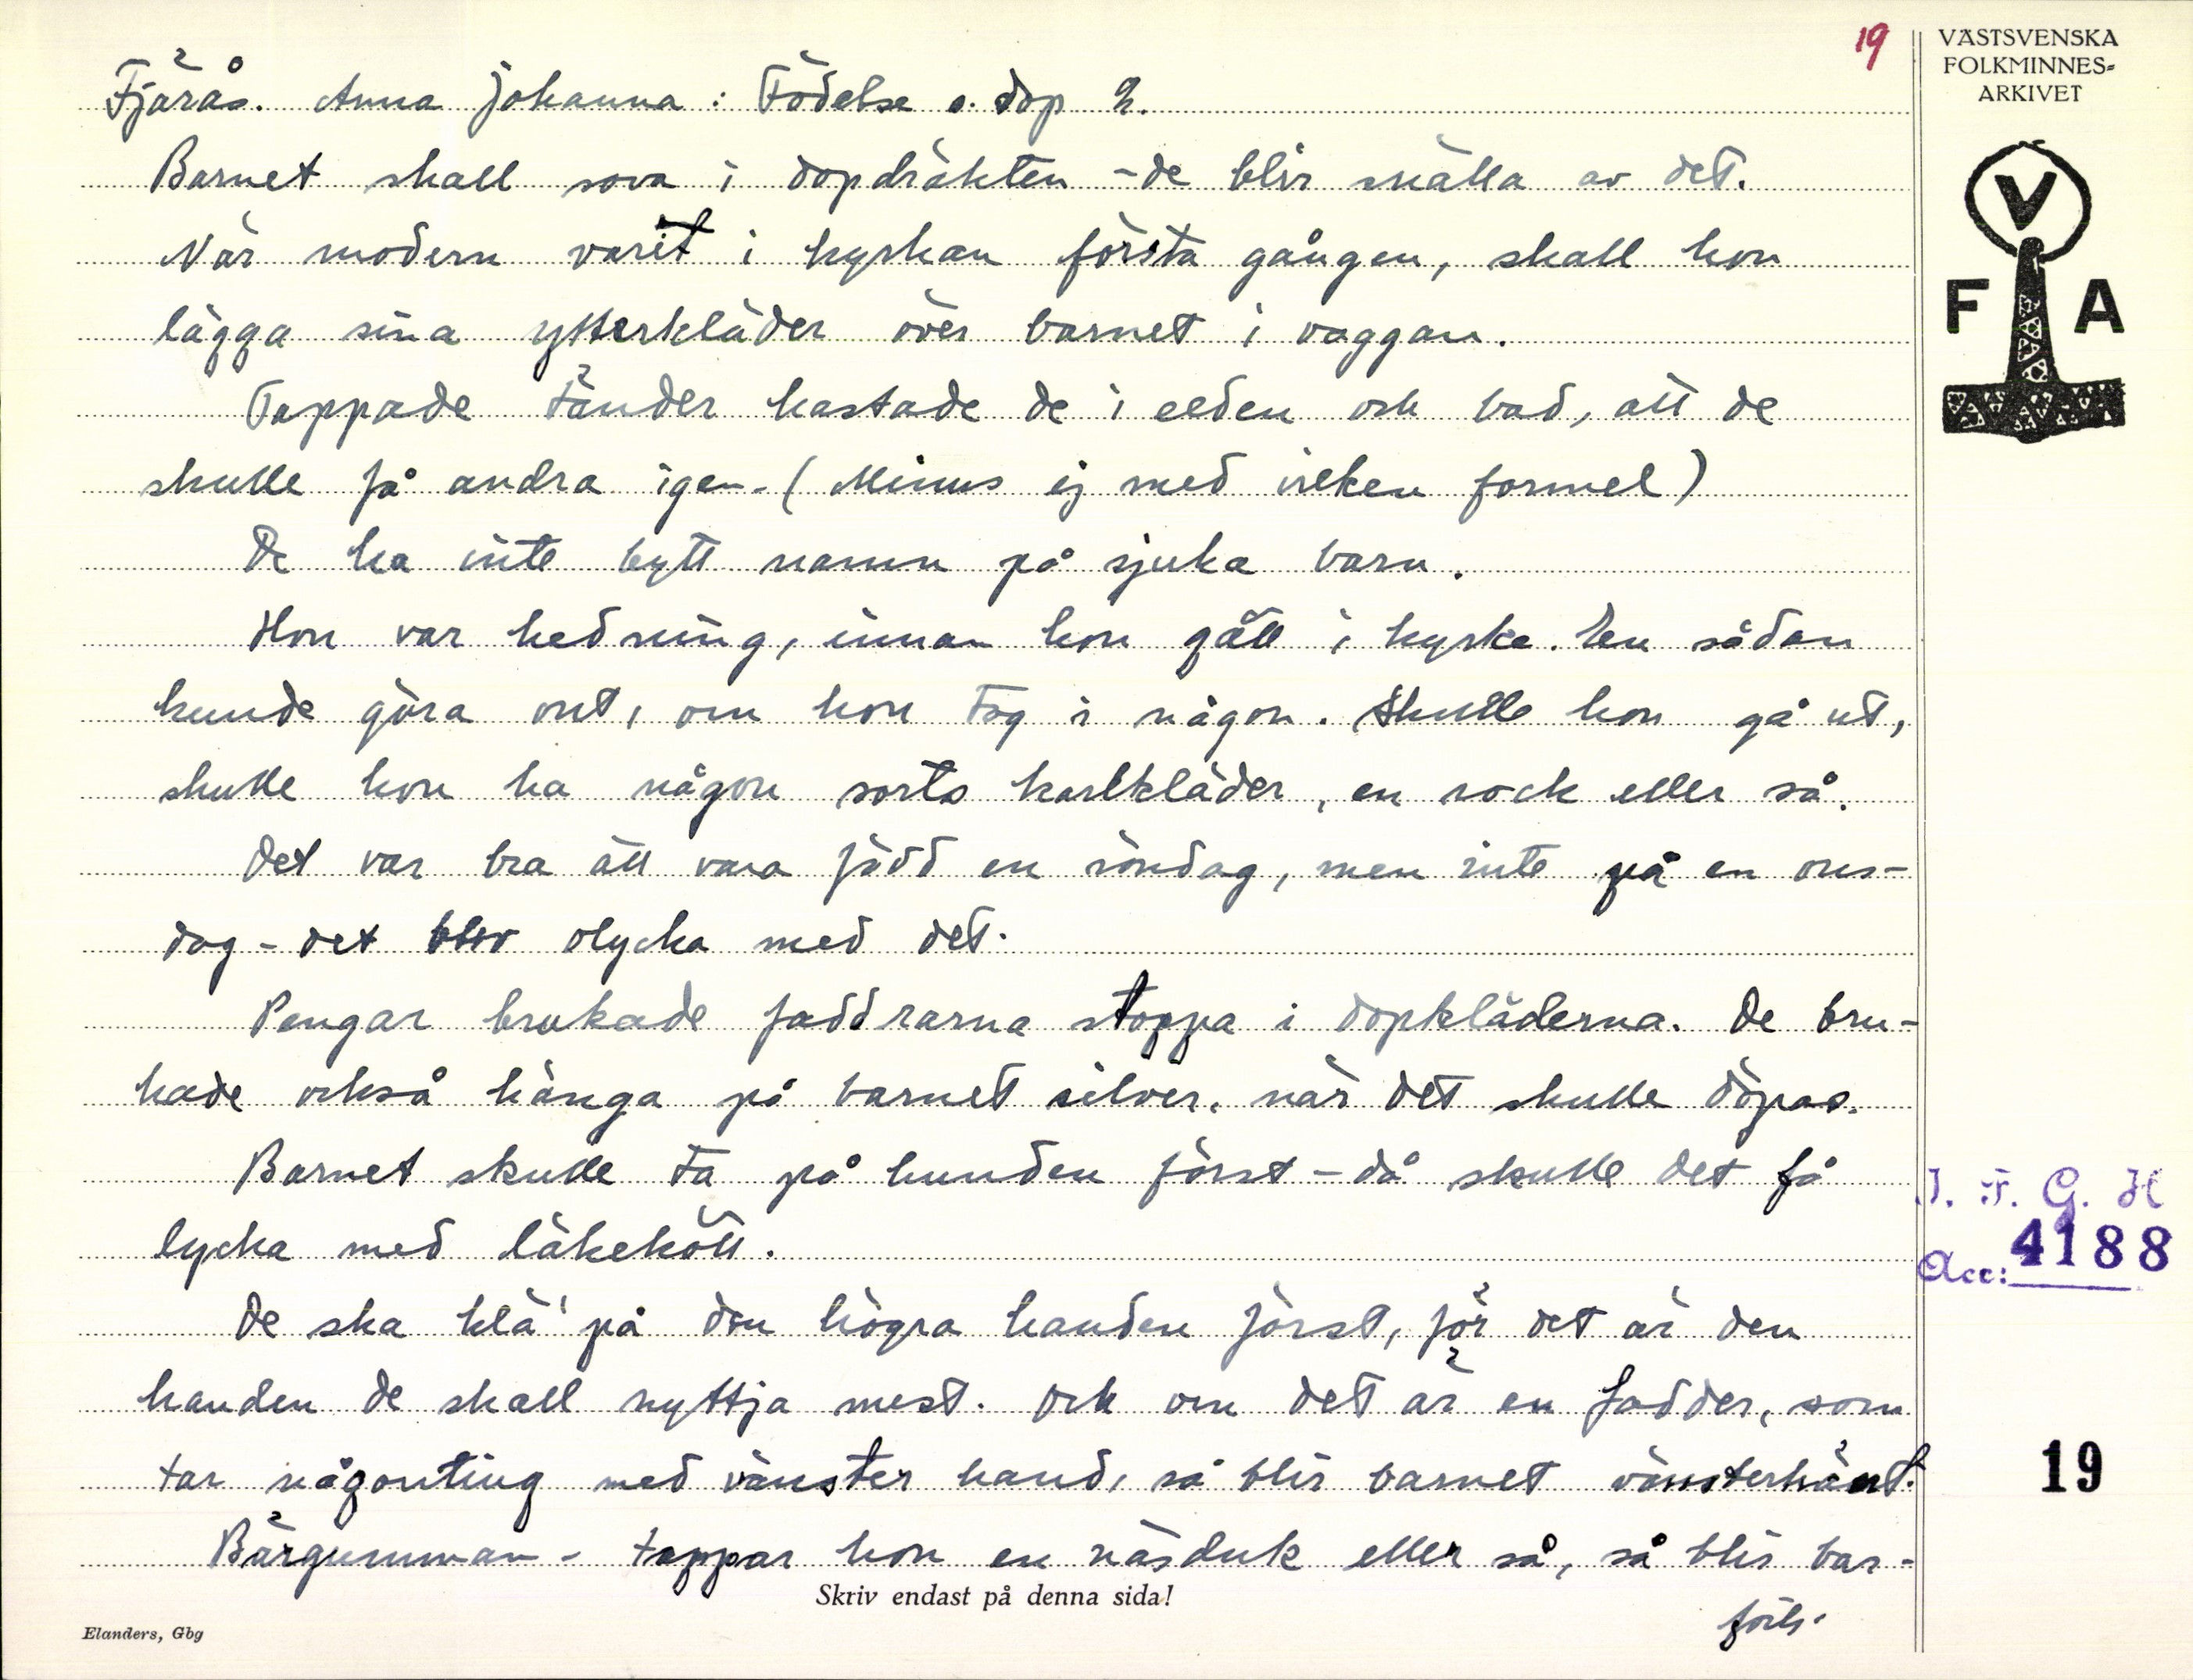 19
VÄSTSVENSKA
FOLKMINNES=
ARKIVET
V
F A
Fjärås. Anna Johanna: Födelse o. dop 2.
Barnet skall sova i dopdräkten - de blir snälla av det.
När modern varit i kyrkan första gången, skall hon
lägga sina ytterkläder över barnet i vaggan.
Tappade tänder kastade de i elden och bad, att de
skulle få andra igen. (Minns ej med vilken formel)
De ha inte bytt namn på sjuka barn.
Hon var hedning, innan hon gått i kyrka. En sådan
kunde göra ont, om hon tog i någon. Skulle hon gå ut,
skulle hon ha någon sorts karlkläder, en rock eller så.
Det var bra att vara född en söndag, men inte på en ons-
dag - det blev olycka med det.
Pengar brukade faddrarna stoppa i dopkläderna. De bru-
kade också hänga på barnet silver, när det skulle döpas.
Barnet skulle ta på hunden först - då skulle det få
lycka med läkekött.
De ska klä' på den högra handen först, för det är den
handen de skall nyttja mest. Och om det är en fadder, som
tar någonting med vänster hand, så blir barnet vänsterhänt.
Bärgumman - tappar hon en näsduk eller så, så blir bar-
forts.
Skriv endast på denna sida!
Elanders, Gbg
I. F. G. H
Acc: 4188
19